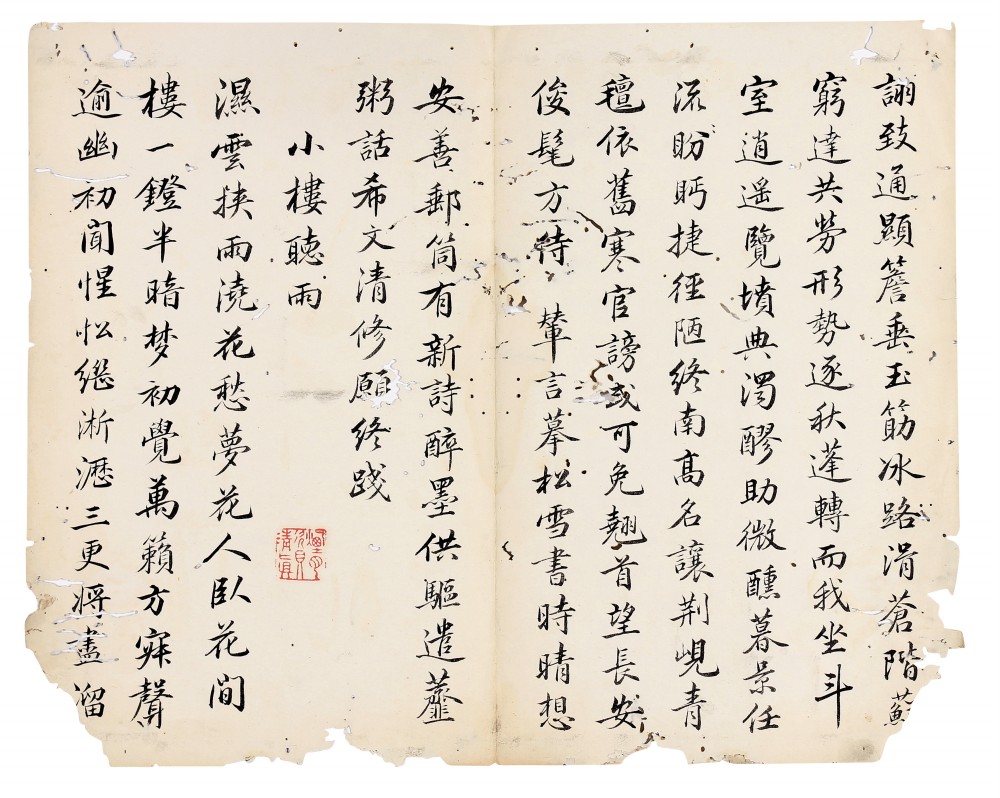 致通顯簷垂玉筯冰路滑蒼階蘚
窮達共勞形勢逐秋蓬轉而我坐斗
室逍遥覽墳典濁醪助微醺暮景任
流盼眄捷徑陋終南高名讓荆峴青
氊依舊寒官謗或可免翹首望長安
俊髦方待輦言摹松雪書時晴想
安善郵筒有新詩醉墨供驅遣虀
粥話希文清修願終踐
小樓聽雨
濕雲挾雨澆花愁夢花人臥花間
樓一鐙半暗梦初覺萬籟方寐聲
逾幽初聞惺忪繼淅瀝三更將盡溜